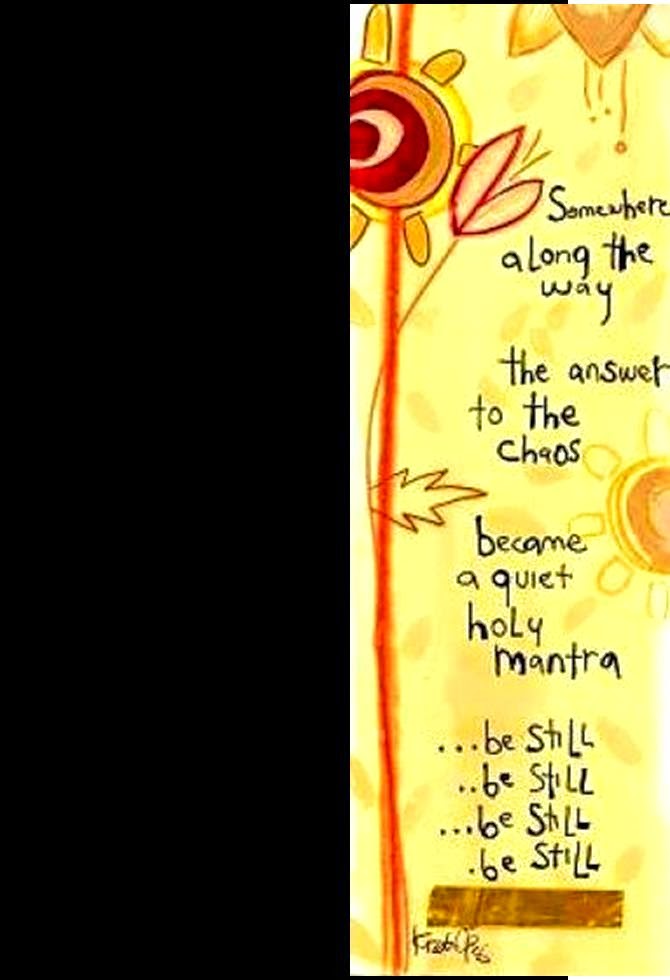 Somewhere
along the
way
the answer
to the
chaos
became
a quiet
holy
mantra
...be STILL
..be STILL
...be STILL
.be STILL